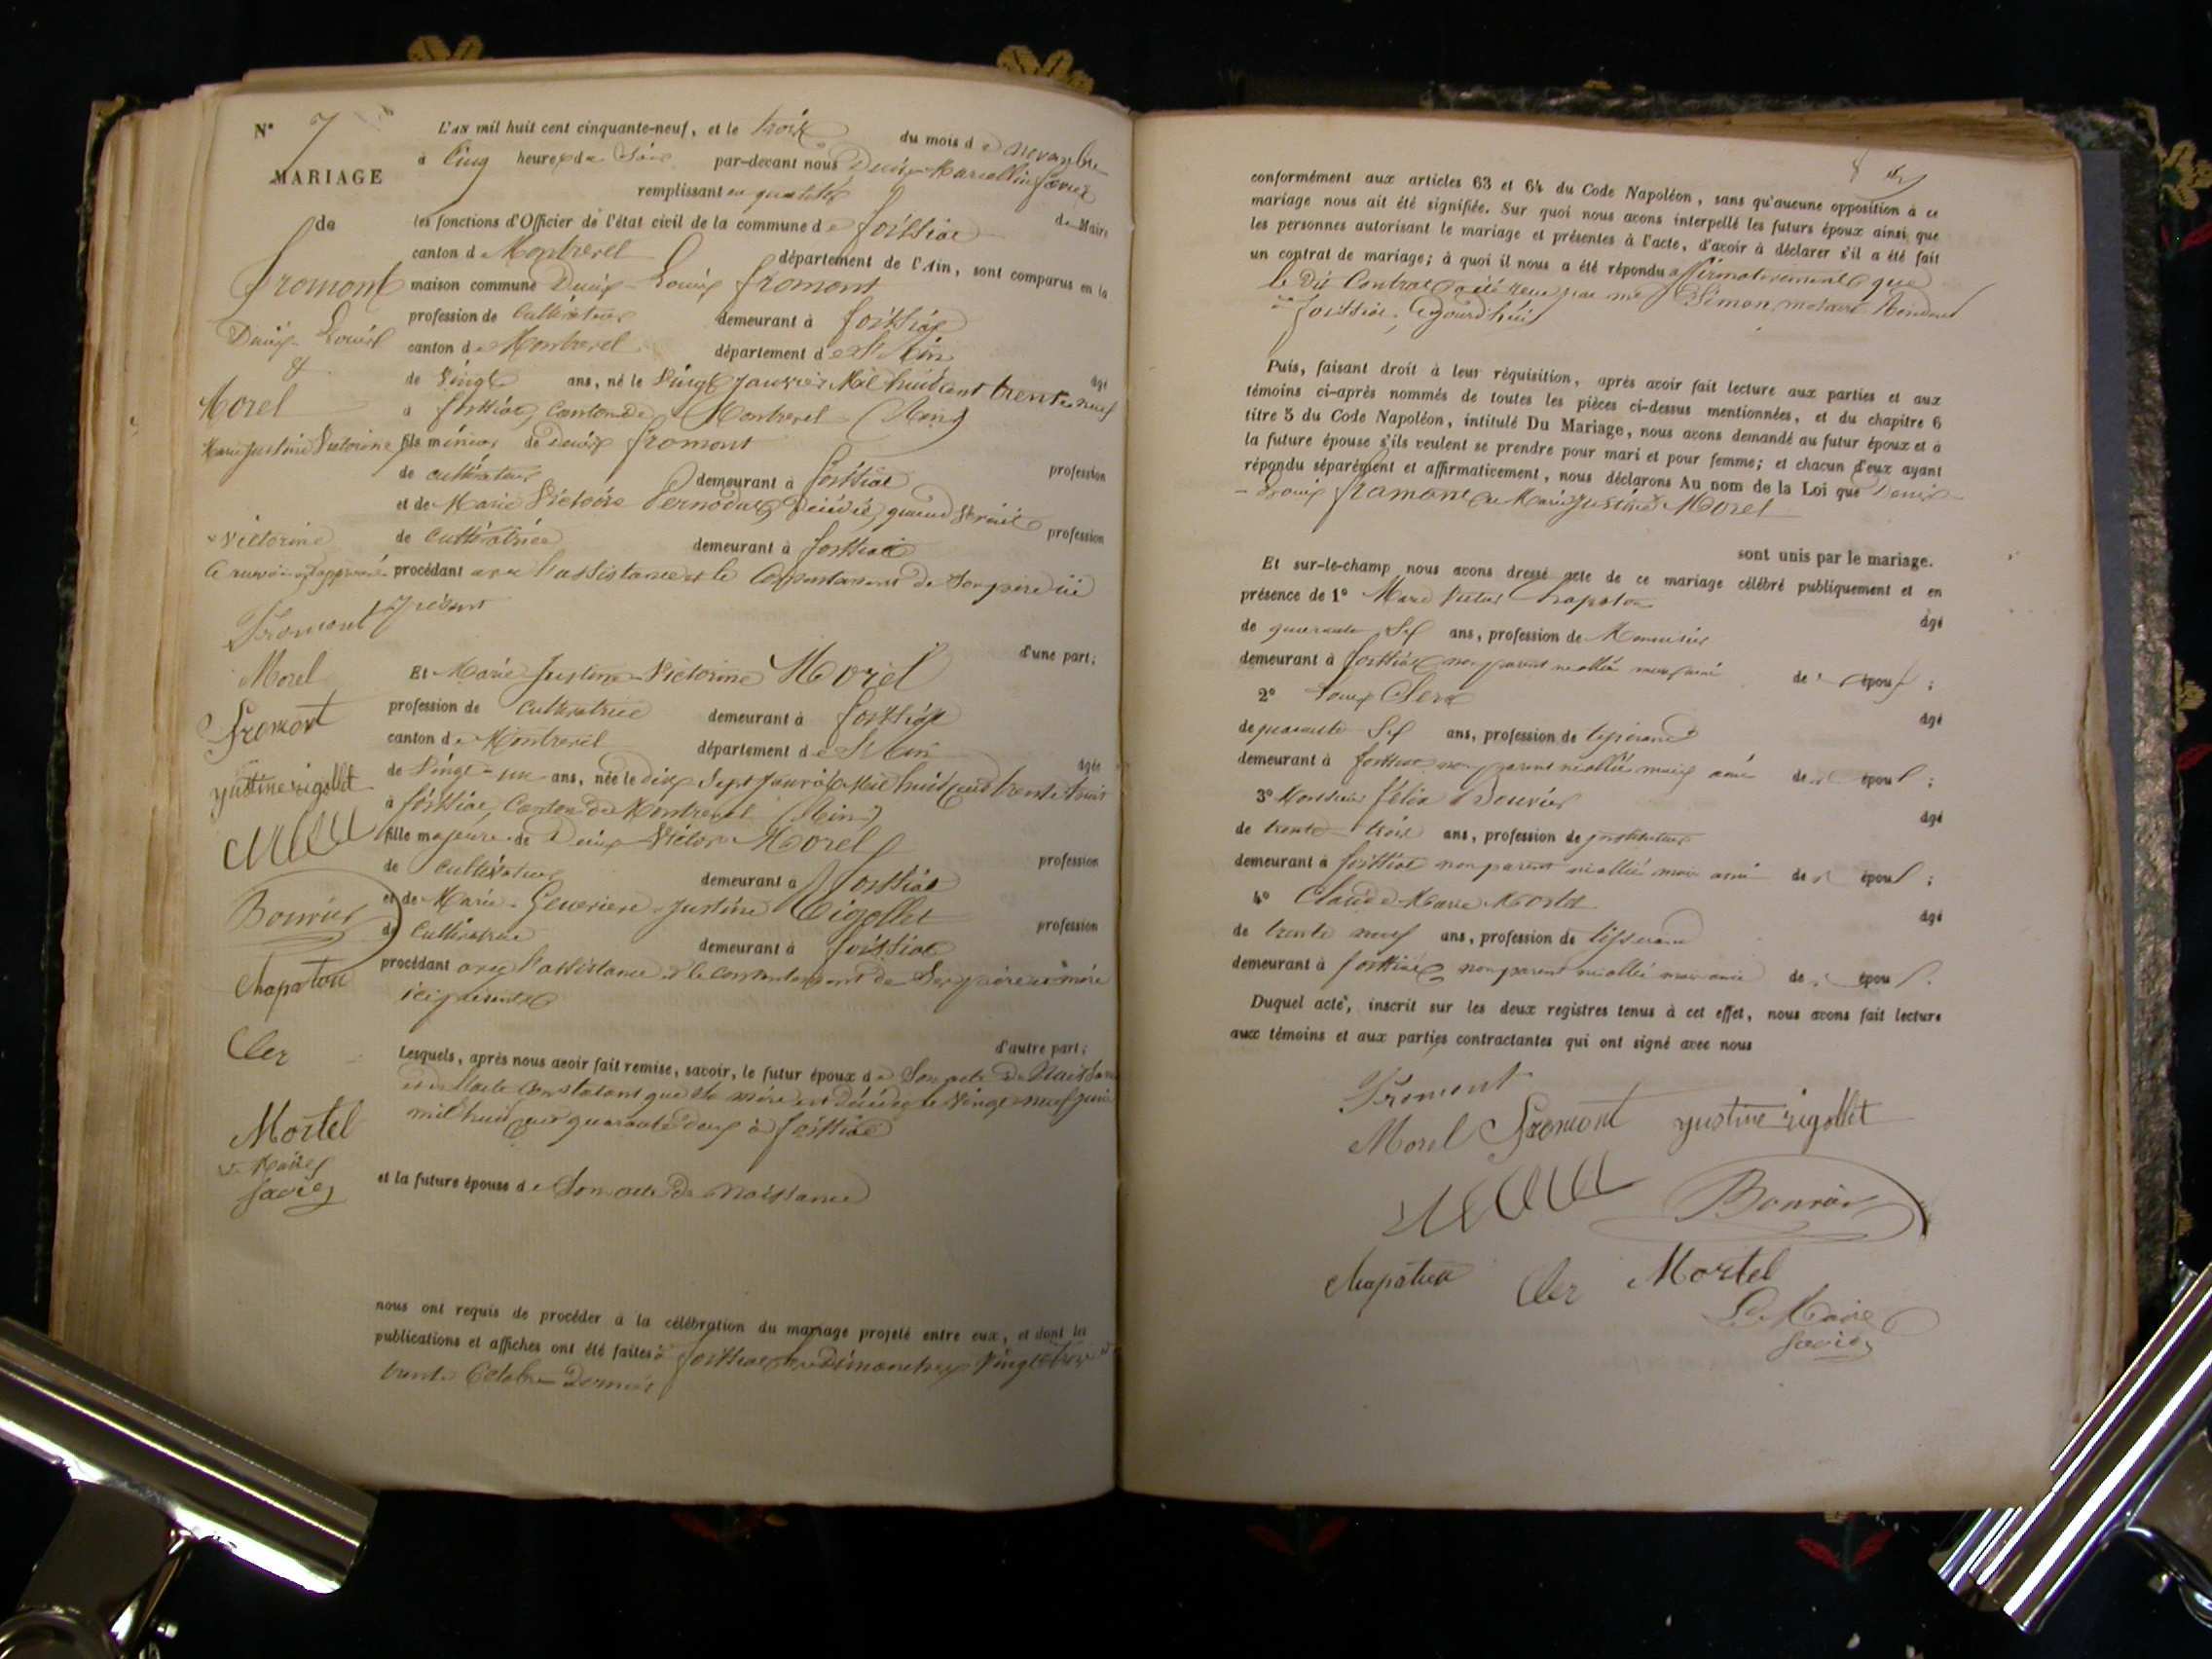 N° 7
MARIAGE
de
Fromont
Denis Louis
&
Morel
Marie Justine Victorine
Victorine
Fromont
Morel
Fromont
justine rigollet
Bouvier
Chapaton
Cler
Mortel
Le Maire
L'an mil huit cent cinquante-neuf, et le trois du mois de novembre
à Cinq heures du Soir par-devant nous Denis Marcellin
remplissant en qualité de Maire
les fonctions d'Officier de l'état civil de la commune de foissiat
canton de Montrevel département de l'Ain, sont comparus en la
maison commune Denis Louis fromont
profession de Cultivateur demeurant à foissiat
canton de Montrevel département de l'Ain âgé
de Vingt ans, né le Vingt Janvier Mil huit cent trente neuf
à foissiat, Canton de Montrevel (Ain)
fils mineur de Denis fromont profession
de cultivateur demeurant à foissiat
et de Marie Victoire Pernodat Décédée, quand vivait profession
de Cultivatrice demeurant à foissiat
procédant avec l'assistance et le Consentement de Son père ici
présent
d'une part;
Et Marie Justine Victorine Morel
profession de Cultivatrice demeurant à foissiat
canton de Montrevel département de l'Ain âgée
de Vingt-un ans, née le dix Sept Janvier Mil huit cent trente huit
à foissiat, Canton de Montrevel (Ain)
fille majeure de Denis Victor Morel profession
de Cultivateur demeurant à foissiat
et de Marie Genevieve Justine Rigollet profession
de Cultivatrice demeurant à foissiat
procédant avec l'assistance et le consentement de Ses père et mère
ici présents
d'autre part;
Lesquels, après nous avoir fait remise, savoir, le futur époux de Son acte de Naissance
et de l'acte Constatant que Sa mère est décédée le Vingt neuf
mil huit cent quarante deux à foissiat
et la future épouse de Son acte de Naissance
nous ont requis de procéder à la célébration du mariage projeté entre eux, et dont les
publications et affiches ont été faites à foissiat les Dimanches Vingt trois et
trente Octobre Dernier
conformément aux articles 63 et 64 du Code Napoléon, sans qu'aucune opposition à ce
mariage nous ait été signifiée. Sur quoi nous avons interpellé les futurs époux ainsi que
les personnes autorisant le mariage et présentes à l'acte, d'avoir à déclarer s'il a été fait
un contrat de mariage; à quoi il nous a été répondu affirmativement que
le Dit Contrat a été reçu par me Simon, notaire Résidant
à foissiat, aujourd'hui
Puis, faisant droit à leur réquisition, après avoir fait lecture aux parties et aux
témoins ci-après nommés de toutes les pièces ci-dessus mentionnées, et du chapitre 6
titre 5 du Code Napoléon, intitulé Du Mariage, nous avons demandé au futur époux et à
la future épouse s'ils veulent se prendre pour mari et pour femme; et chacun d'eux ayant
répondu séparément et affirmativement, nous déclarons Au nom de la Loi que Denis
Louis fromont et Marie Justine Morel
sont unis par le mariage.
Et sur-le-champ nous avons dressé acte de ce mariage célébré publiquement et en
présence de 1° Marie Victor Chapaton âgé
de quarante Six ans, profession de Menuisier
demeurant à foissiat non parent ni allié mais ami des époux;
2° Louis Clerc âgé
de quarante Six ans, profession de tisserand
demeurant à foissiat non parent ni allié mais ami des époux;
3° Monsieur félix Bouvier âgé
de trente trois ans, profession de instituteur
demeurant à foissiat non parent ni allié mais ami des époux;
4° Claude Marie Mortel âgé
de trente neuf ans, profession de tisserand
demeurant à foissiat non parent ni allié mais ami des époux.
Duquel acte, inscrit sur les deux registres tenus à cet effet, nous avons fait lecture
aux témoins et aux parties contractantes qui ont signé avec nous
Fromont
Morel Fromont justine rigollet
Bouvier
Chapaton Cler Mortel
Le Maire